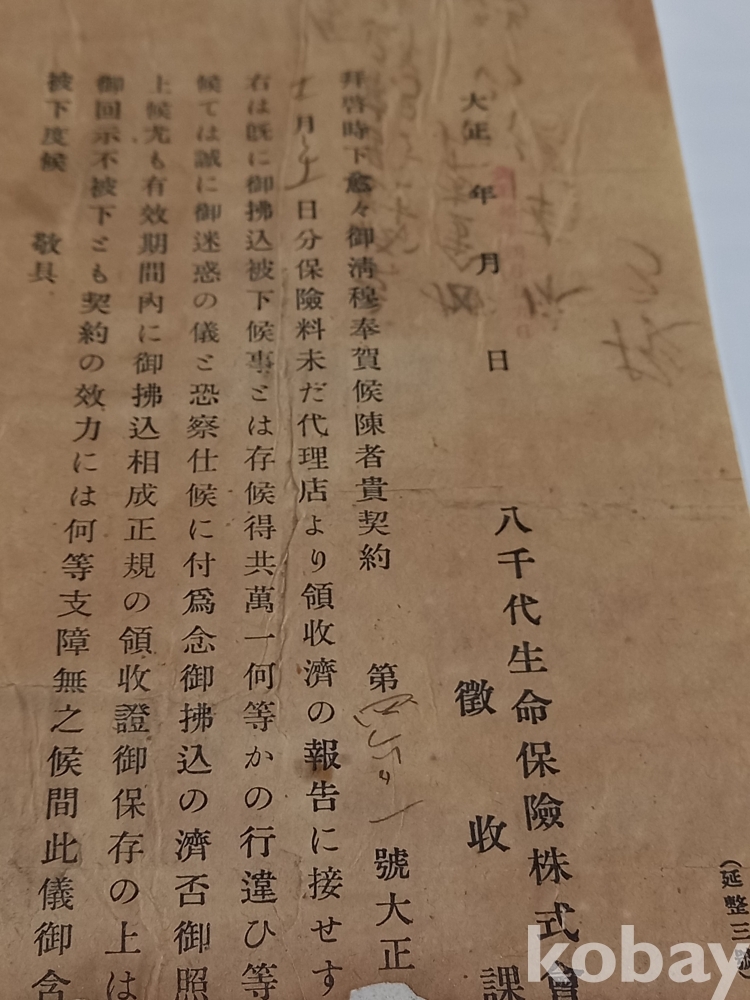 (延整三號
八千代生命保險株式會
徵收課
大正 年 月 日
拜啓時下愈々御淸穆奉賀候陳者貴契約 第 號大正
月 日分保險料未だ代理店より領收濟の報告に接せす
右は既に御拂込被下候事とは存候得共萬一何等かの行違ひ等
候ては誠に御迷惑の儀と恐察仕候に付爲念御拂込の濟否御照
上候尤も有效期間內に御拂込相成正規の領收證御保存の上は
御回示不被下とも契約の效力には何等支障無之候間此儀御含
被下度候 敬具
kobay